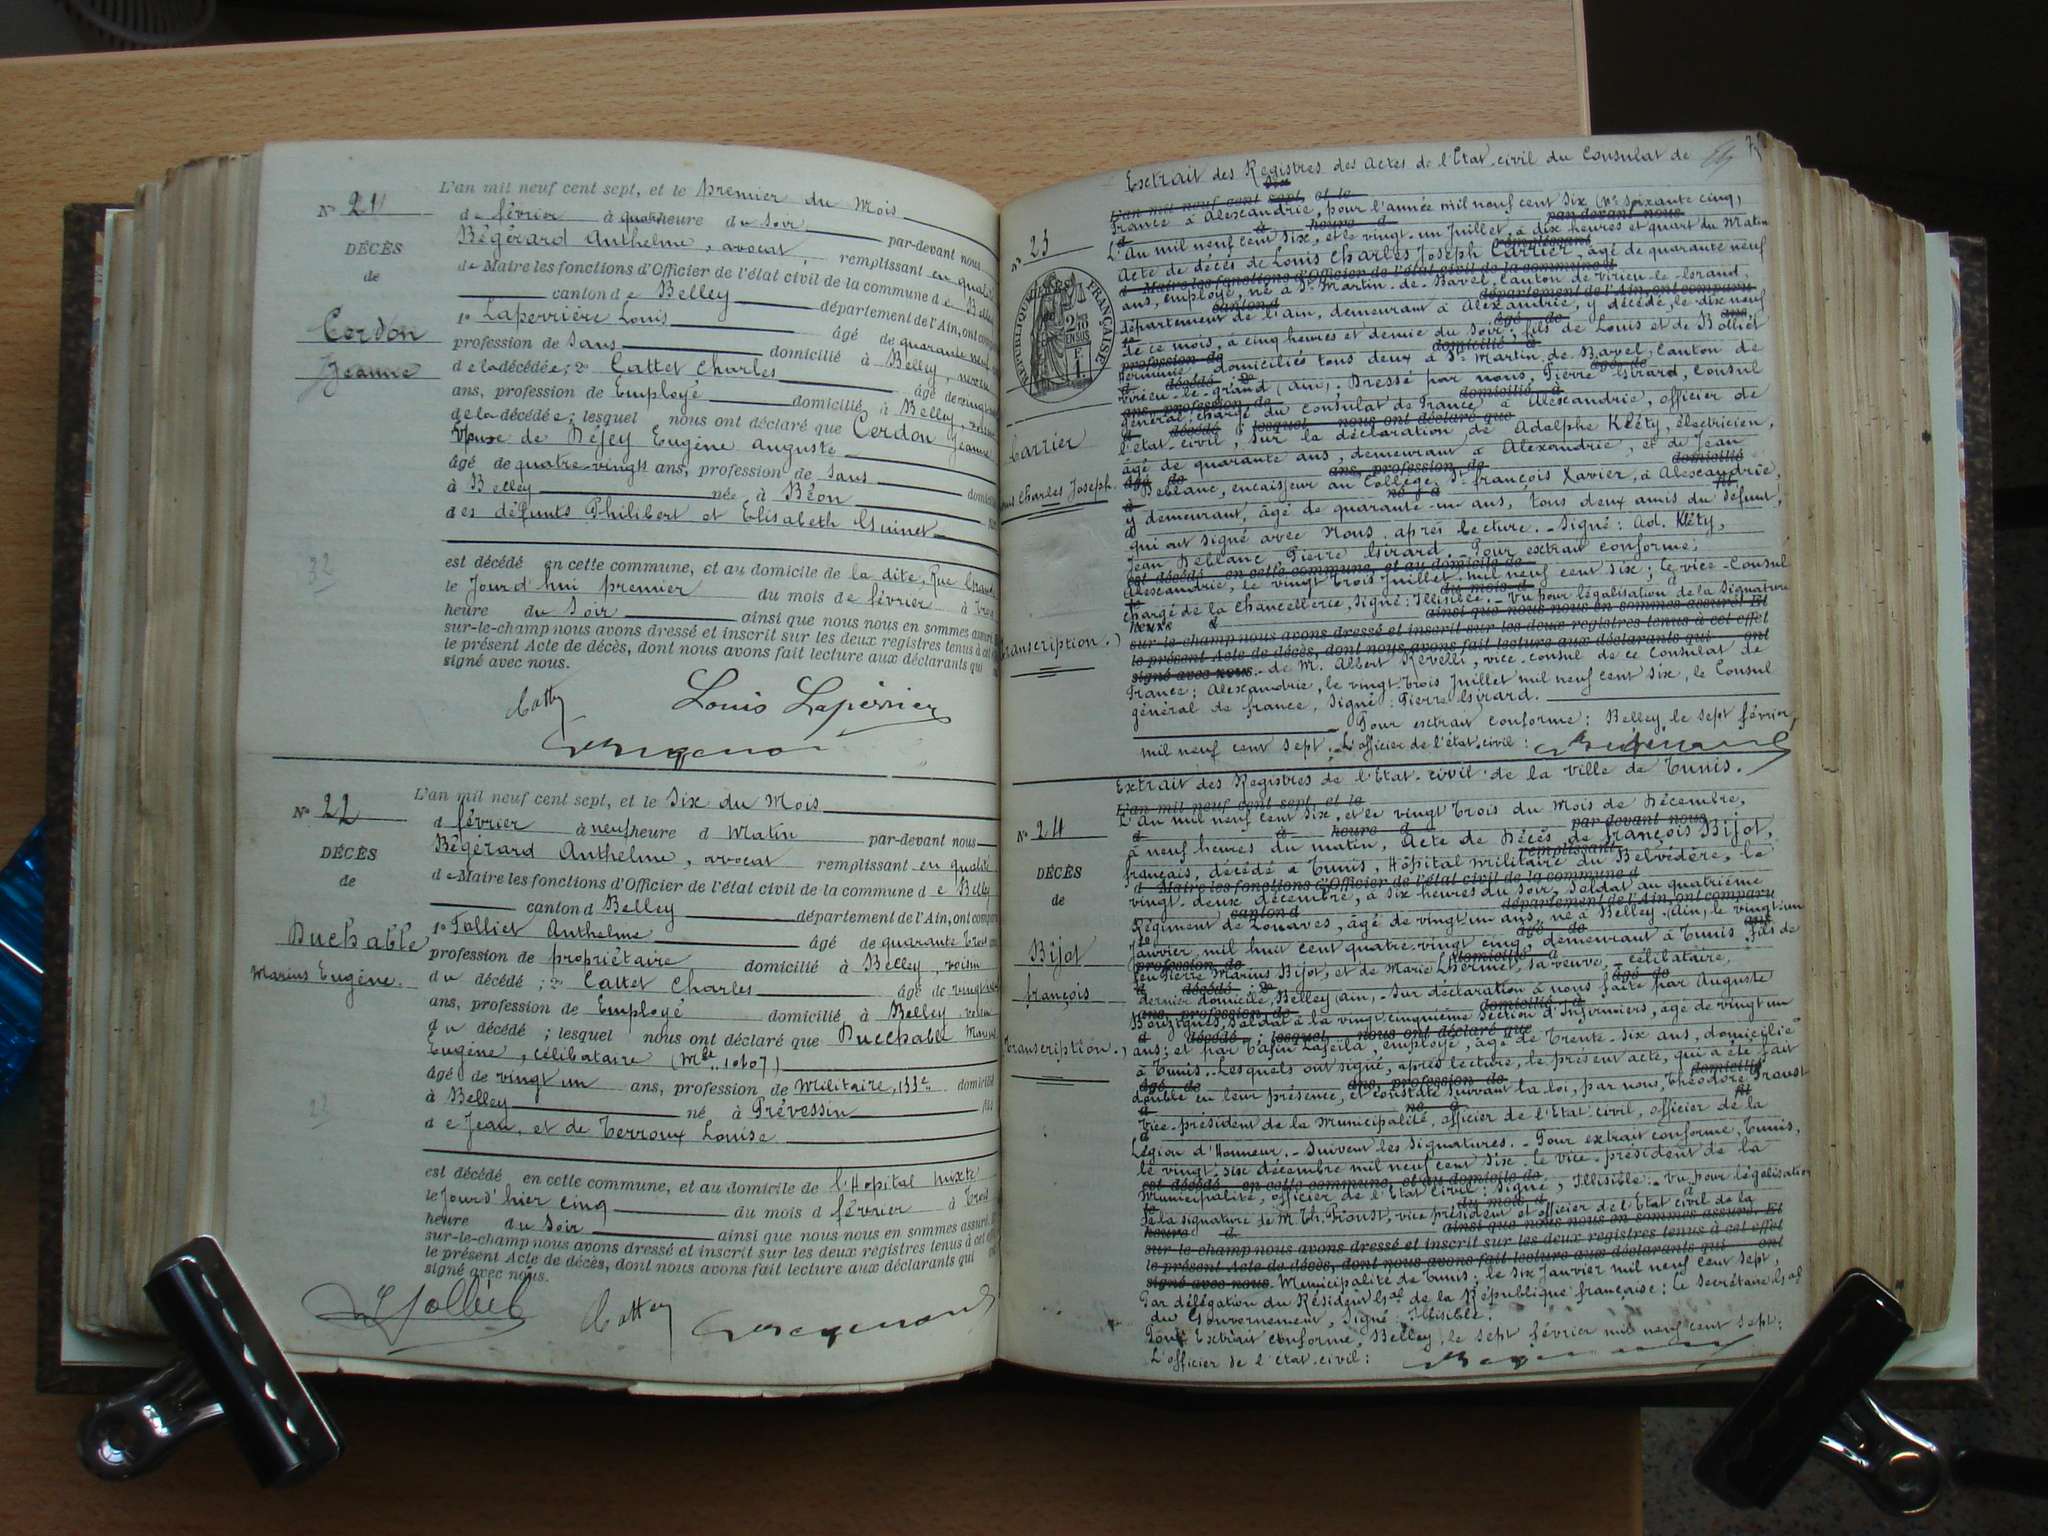 N° 21
DÉCÈS
de
Cordon
Jeanne
L'an mil neuf cent sept, et le premier du Mois
de février à quatre heure du Soir par-devant nous
Bégérard Anthelme, avocat, remplissant en qualité
de Maire les fonctions d'Officier de l'état civil de la commune de Belley
canton de Belley département de l'Ain, ont comparu
1° Laperrière Louis âgé de quarante neuf
profession de Sans domicilié à Belley, neveu
de la décédée; 2° Cattet Charles âgé de vingt
ans, profession de Employé domicilié à Belley, voisin
de la décédée; lesquel nous ont déclaré que Cordon Jeanne
Veuve de Déjey Eugène Auguste
âgé de quatre-vingts ans, profession de Sans domicilié
à Belley née à Béon
des défunts Philibert et Elisabeth Guinet
32
est décédé en cette commune, et au domicile de la dite, Rue
le Jourd'hui premier du mois de février à Trois
heure du Soir ainsi que nous nous en sommes assuré.
sur-le-champ nous avons dressé et inscrit sur les deux registres tenus à cet
le présent Acte de décès, dont nous avons fait lecture aux déclarants qui
signé avec nous.
Louis Laperrière
N° 22
DÉCÈS
de
Duchable
Marius Eugène.
L'an mil neuf cent sept, et le Six du Mois
d février à neuf heure d Matin par-devant nous
Bégérard Anthelme, avocat remplissant en qualité
de Maire les fonctions d'Officier de l'état civil de la commune de Belley
canton d Belley département de l'Ain, ont comparu
1° Folliet Anthelme âgé de quarante Trois
profession de propriétaire domicilié à Belley, voisin
du décédé; 2° Cattet Charles âgé de vingt
ans, profession de Employé domicilié à Belley voisin
du décédé; lesquel nous ont déclaré que Duchable Marius
Eugène, célibataire (Mle 10607)
âgé de vingt un ans, profession de Militaire, 133e domicilié
à Belley né à Prévessin fils
de Jean, et de Terroux Louise
est décédé en cette commune, et au domicile de l'Hopital mixte
le Jourd'hier cinq du mois d février à Trois
heure du Soir ainsi que nous nous en sommes assuré.
sur-le-champ nous avons dressé et inscrit sur les deux registres tenus à cet
le présent Acte de décès, dont nous avons fait lecture aux déclarants qui
signé avec nous.
Folliet
Extrait des Registres des Actes de l'Etat-civil du Consulat de
N° 23
RÉPUBLIQUE FRANÇAISE
Carrier
Charles Joseph.
Transcription.)
France à Alexandrie, pour l'année mil neuf cent Six (N° Soixante cinq)
L'An mil neuf cent Six, et le vingt-un Juillet, à dix heures et quart du Matin
Acte de décès de Louis Charles Joseph Carrier, âgé de quarante neuf
ans, employé, né à St Martin-de-Bavel, Canton de Virieu-le-Grand,
département de l'ain, demeurant à Alexandrie, y décédé, le dix neuf
de ce mois, à cinq heures et demie du Soir; fils de Louis et de Bolliet
Germaine, domiciliés tous deux à St Martin de Bavel, Canton de
Virieu-le-Grand (Ain). Dressé par nous, Pierre Girard, Consul
Général chargé du Consulat de France à Alexandrie, officier de
l'état-civil, sur la déclaration de Adolphe Kléty, électricien,
âgé de quarante ans, demeurant à Alexandrie, et de Jean
Deblanc, encaisseur au Collège St françois Xavier, à Alexandrie,
y demeurant, âgé de quarante-un ans, tous deux amis du défunt,
qui ont signé avec Nous après lecture. - Signé: Ad. Kléty,
Jean Deblanc Pierre Girard. - Pour extrait conforme;
Alexandrie, le vingt Trois Juillet mil neuf cent Six; le vice-Consul
chargé de la Chancellerie, signé: Illisible. - Vu pour légalisation de la Signature
de M. Albert Revelli, vice-consul de ce Consulat de
France; Alexandrie, le vingt-trois Juillet mil neuf cent Six, le Consul
général de france, Signé: Pierre Girard.
Pour extrait conforme: Belley le sept février
mil neuf cent sept. L'officier de l'état-civil:
Extrait des Registres de l'Etat-civil de la Ville de Tunis.
N° 24
DÉCÈS
de
Bijot
françois
Transcription.)
L'An mil neuf cent Six, et le vingt Trois du Mois de Décembre,
à neuf heures du matin, Acte de Décès de françois Bijot,
français, décédé à Tunis, Hôpital Militaire du Belvédère, le
vingt-deux décembre, à Six heures du Soir, Soldat au quatrième
Régiment de Zouaves, âgé de vingt-un ans, né à Belley (Ain, le vingt-un
Janvier mil huit cent quatre-vingt cinq, demeurant à Tunis fils de
feu Pierre Marius Bijot, et de Marie Lhermet, sa veuve, - célibataire,
dernier domicile, Belley (Ain, - Sur déclaration à nous faite par Auguste
Bouzigues, Soldat à la vingt cinquième Section d'Infirmiers, âgé de vingt un
ans; et par Tahin Lafeila, employé, âgé de Trente-six ans, domicilié
à Tunis. - Lesquels ont signé, après lecture, le présent acte, qui a été fait
double en leur présence, et constaté suivant la loi, par nous, Théodore Proust
Vice-président de la Municipalité, officier de l'Etat civil, officier de la
Légion d'Honneur. - Suivent les Signatures. - Pour extrait conforme, Tunis,
le vingt-six décembre mil neuf cent Six. le Vice-président de la
Municipalité, officier de l'Etat Civil: Signé, Illisible. - Vu pour légalisation
de la signature de M. Th. Proust, vice président et officier de l'Etat civil de la
Municipalité de Tunis; le Six Janvier mil neuf cent sept,
Par délégation du Résident Gal de la République française: Le Secrétaire Gal
du Gouvernement, Signé, Illisible.
Pour Extrait conforme, Belley, le sept février mil neuf cent sept:
L'officier de l'état-civil: